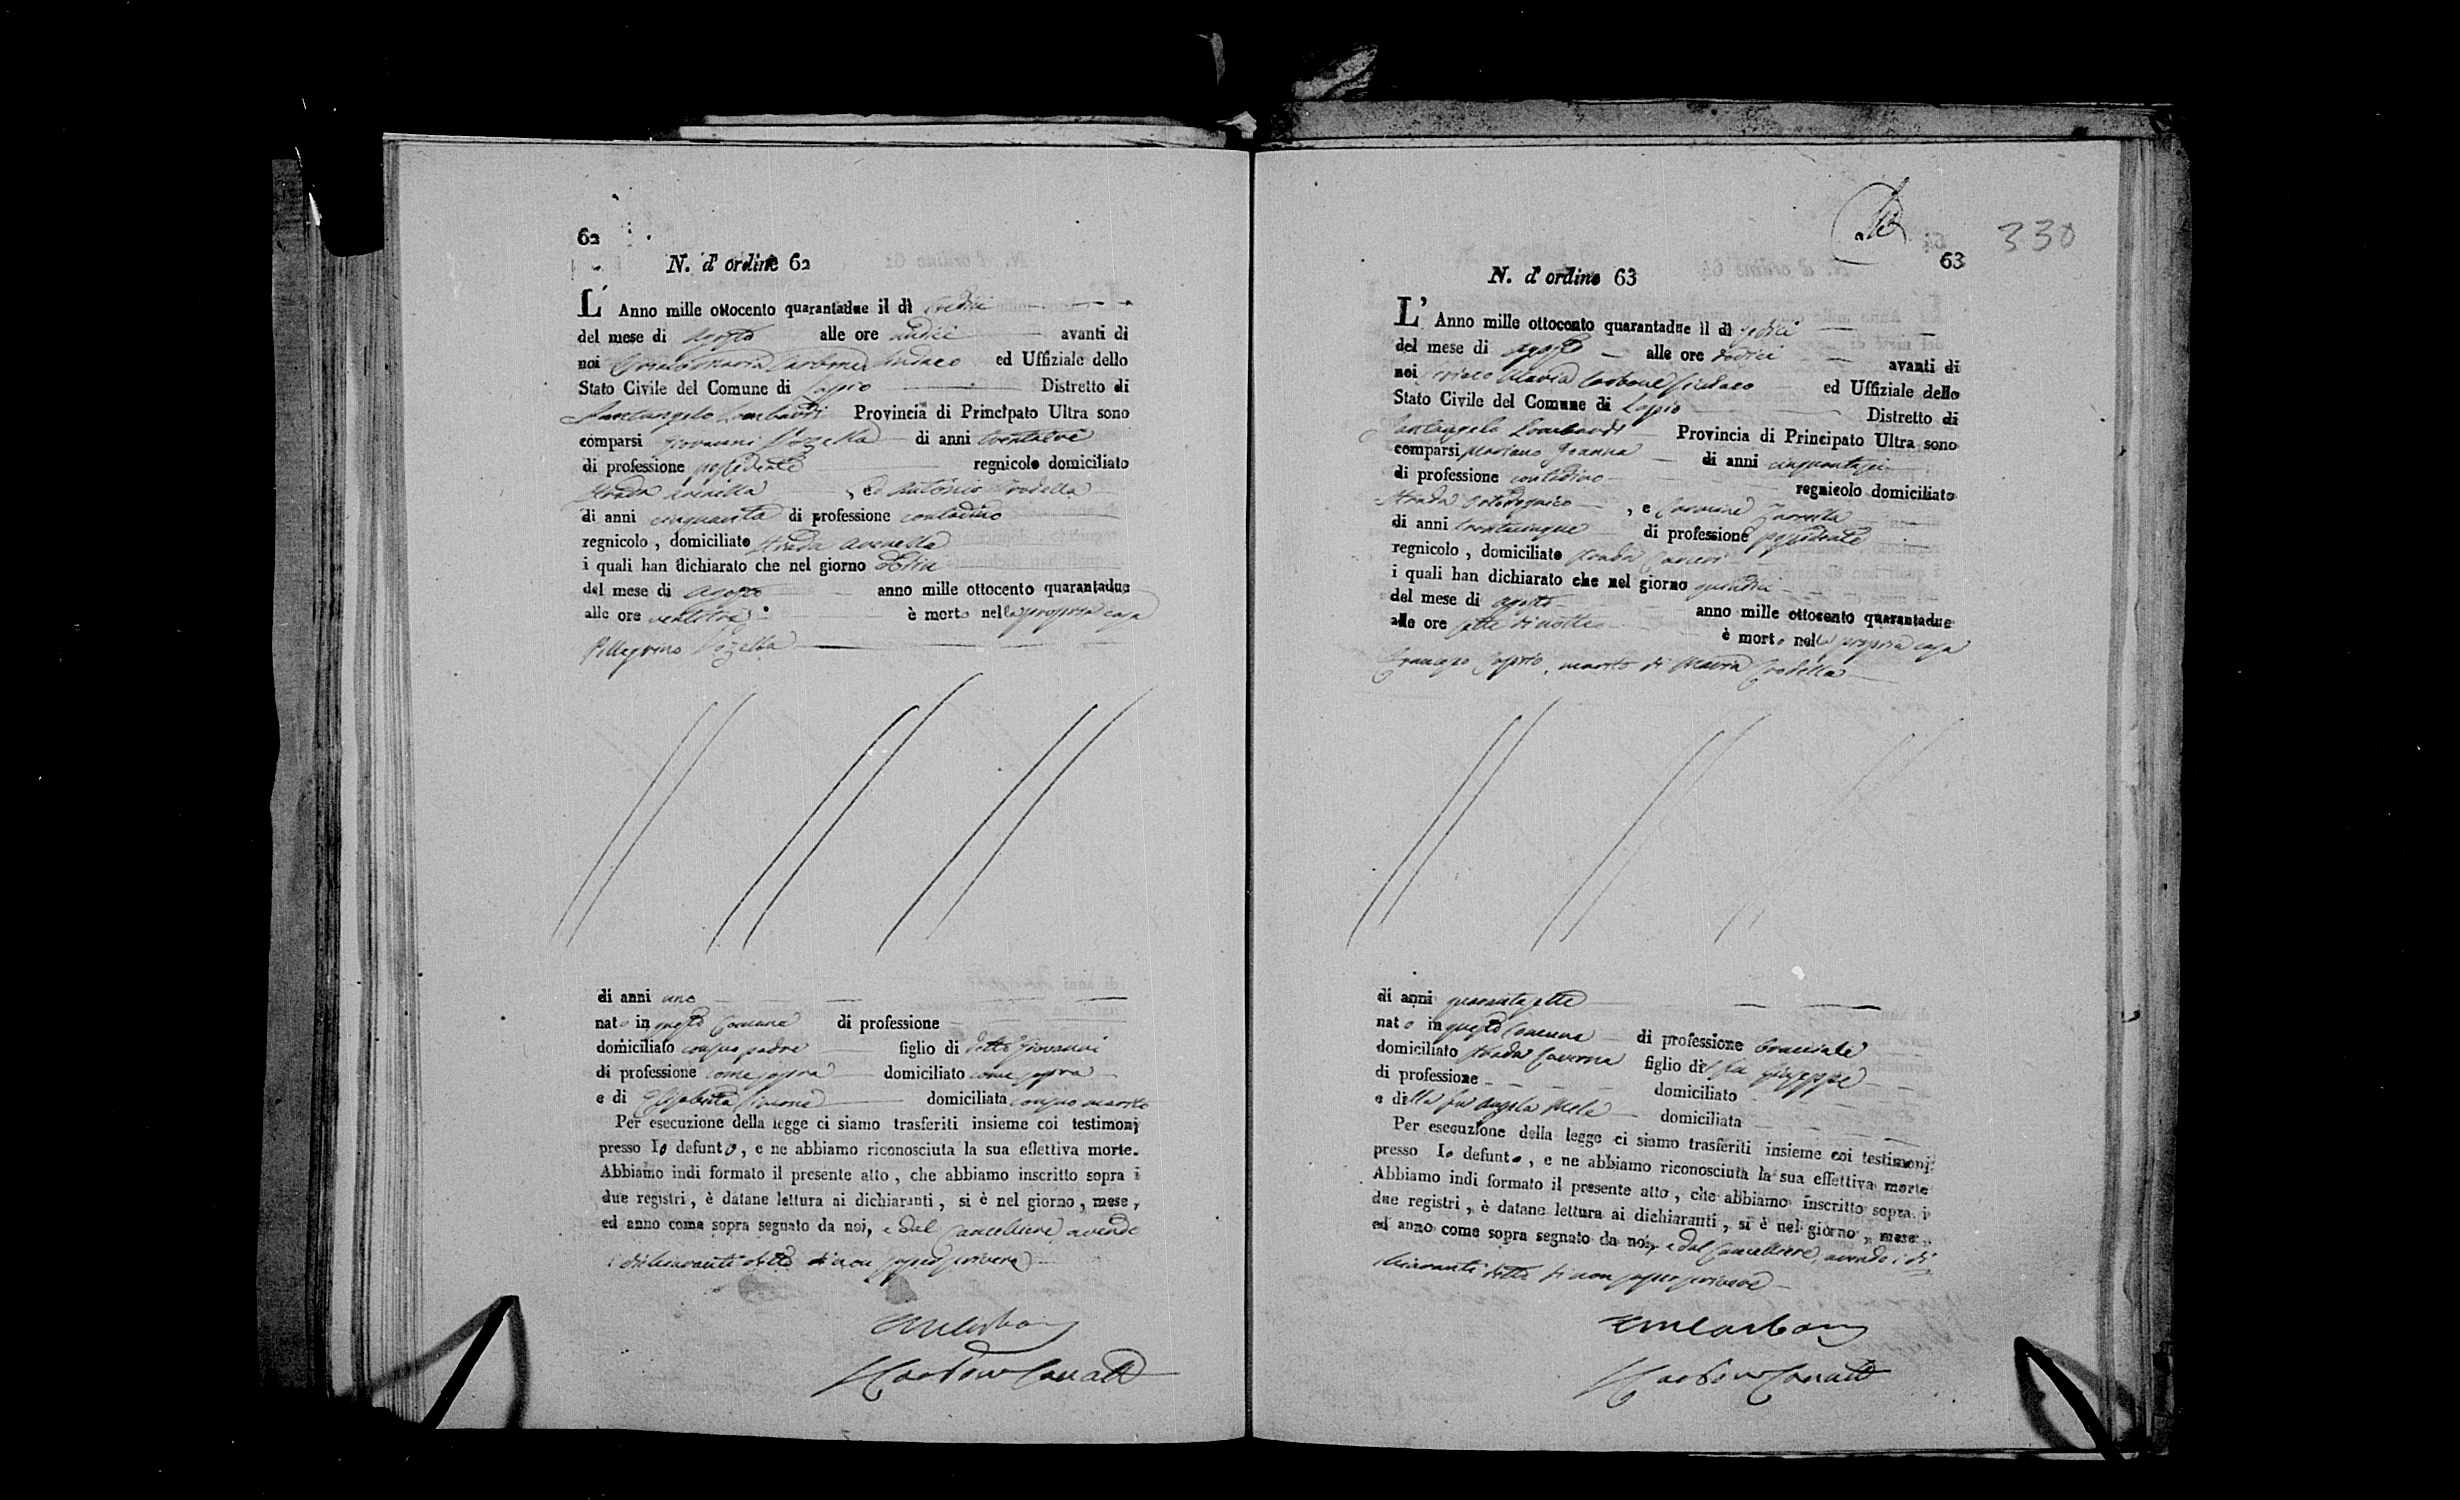 62
N. d' ordine 62
L' Anno mille ottocento quarantadue il dì tredici
del mese di Agosto alle ore undici avanti di
noi Maria Carbone Sindaco ed Uffiziale dello
Stato Civile del Comune di Lapio Distretto di
Santangelo Lombardi Provincia di Principato Ultra sono
comparsi Giovanni di anni trentatre
di professione possidente regnicolo domiciliato
strada avenella, ed Antonio Trodella
di anni cinquanta di professione contadino
regnicolo, domiciliato strada avenella
i quali han dichiarato che nel giorno
del mese di Agosto anno mille ottocento quarantadue
alle ore ventitre è morto nella propria casa
Pellegrino
di anni uno
nato in questo Comune di professione
domiciliato con suo padre figlio di detto Giovanni
di professione come sopra domiciliato come sopra
e di Elisabetta domiciliata con suo marito
Per esecuzione della legge ci siamo trasferiti insieme coi testimonj
presso lo defunto, e ne abbiamo riconosciuta la sua effettiva morte.
Abbiamo indi formato il presente atto, che abbiamo inscritto sopra i
due registri, è datane lettura ai dichiaranti, si è nel giorno, mese,
ed anno come sopra segnato da noi, e dal Cancelliere avendo
i dichiaranti detto di non saper scrivere
330
63
N. d' ordine 63
L' Anno mille ottocento quarantadue il dì sedici
del mese di Agosto alle ore dodici avanti di
noi Maria Carbone Sindaco ed Uffiziale dello
Stato Civile del Comune di Lapio Distretto di
Santangelo Lombardi Provincia di Principato Ultra sono
comparsi Mariano Joanna di anni cinquantasei
di professione contadino regnicolo domiciliato
strada, e Carmine
di anni trentacinque di professione possidente
regnicolo, domiciliato strada
i quali han dichiarato che nel giorno quindici
del mese di agosto anno mille ottocento quarantadue
alle ore sette di notte è morto nella propria casa
Francesco Caprio, marito di Maria Trodella
di anni quarantasette
nato in questo Comune di professione bracciale
domiciliato strada Caverna figlio del fu Giuseppe
di professione domiciliato
e della fu Angela Mele domiciliata
Per esecuzione della legge ci siamo trasferiti insieme coi testimonj
presso lo defunto, e ne abbiamo riconosciuta la sua effettiva morte
Abbiamo indi formato il presente atto, che abbiamo inscritto sopra i
due registri, è datane lettura ai dichiaranti, si è nel giorno, mese,
ed anno come sopra segnato da noi, e dal Cancelliere, avendo i di
chiaranti detto di non saper scrivere